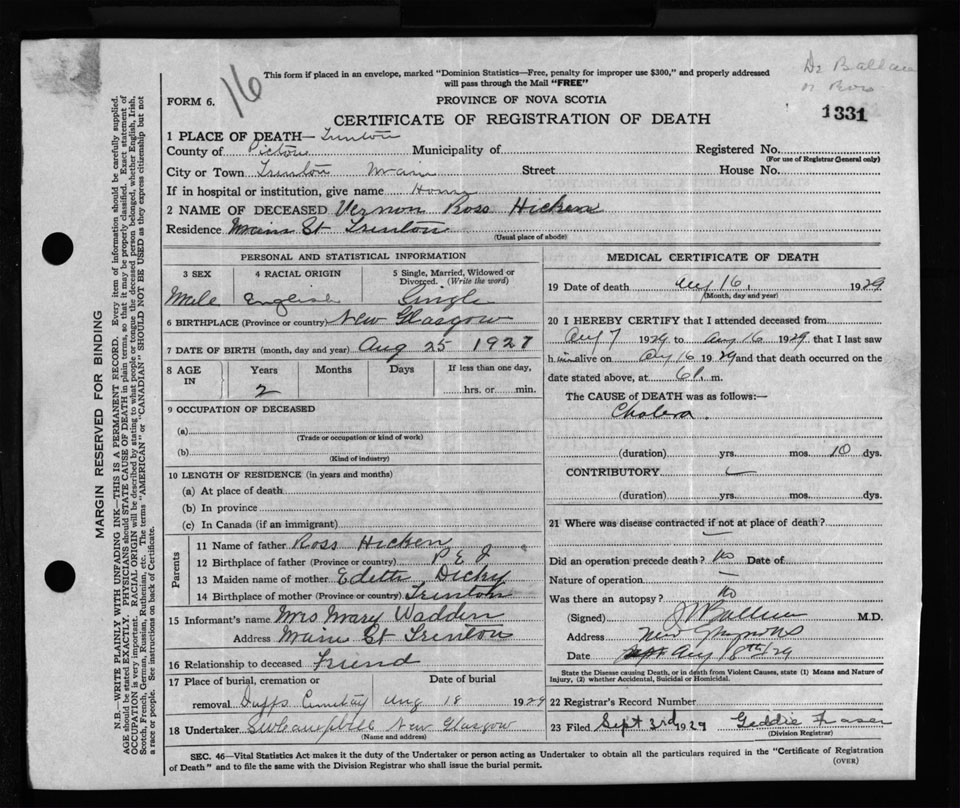 16
This form if placed in an envelope, marked "Dominion Statistics—Free, penalty for improper use $300," and properly addressed
will pass through the Mail "FREE"
FORM 6.
PROVINCE OF NOVA SCOTIA
1331
CERTIFICATE OF REGISTRATION OF DEATH
1 PLACE OF DEATH— Trenton
County of Pictou Municipality of Registered No.
(For use of Registrar General only)
City or Town Trenton Main Street House No.
If in hospital or institution, give name Home
2 NAME OF DECEASED Vernon Ross Hicken
Residence Main St Trenton
(Usual place of abode)
PERSONAL AND STATISTICAL INFORMATION
3 SEX 4 RACIAL ORIGIN 5 Single, Married, Widowed or
Divorced. (Write the word)
Male English Single
6 BIRTHPLACE (Province or country) New Glasgow
7 DATE OF BIRTH (month, day and year) Aug 25 1927
8 AGE IN Years Months Days If less than one day,
2 hrs. or min.
9 OCCUPATION OF DECEASED
(a)
(Trade or occupation or kind of work)
(b)
(Kind of industry)
10 LENGTH OF RESIDENCE (in years and months)
(a) At place of death
(b) In province
(c) In Canada (if an immigrant)
Parents
11 Name of father Ross Hicken
12 Birthplace of father (Province or country) P E I
13 Maiden name of mother Edith Dicky
14 Birthplace of mother (Province or country) Trenton
15 Informant's name Mrs Mary Wadden
Address Main St Trenton
16 Relationship to deceased Friend
17 Place of burial, cremation or Date of burial
removal Duffs Cemetery Aug 18 1929
18 Undertaker Campbell New Glasgow
(Name and address)
MEDICAL CERTIFICATE OF DEATH
19 Date of death Aug 16, 1929
(Month, day and year)
20 I HEREBY CERTIFY that I attended deceased from
Aug 7 1929 to Aug 16 1929 that I last saw
h im alive on Aug 16 1929 and that death occurred on
date stated above, at 6 . m.
The CAUSE of DEATH was as follows:—
Cholera
(duration) yrs. mos. 10 dys.
CONTRIBUTORY
(duration) yrs. mos. dys.
21 Where was disease contracted if not at place of death?
Did an operation precede death? No Date of
Nature of operation
Was there an autopsy? No
(Signed) M.D.
Address New Glasgow
Date Aug 18th/29
State the Disease causing Death, or in death from Violent Causes, state (1) Means and Nature of
Injury, (2) whether Accidental, Suicidal or Homicidal.
22 Registrar's Record Number
23 Filed Sept 3rd 1929 Geddie Fraser
(Division Registrar)
SEC. 46—Vital Statistics Act makes it the duty of the Undertaker or person acting as Undertaker to obtain all the particulars required in the "Certificate of Registration
of Death" and to file the same with the Division Registrar who shall issue the burial permit.
(OVER)
MARGIN RESERVED FOR BINDING
N.B.—WRITE PLAINLY WITH UNFADING INK—THIS IS A PERMANENT RECORD. Every item of information should be carefully supplied.
AGE should be stated EXACTLY. PHYSICIANS should STATE CAUSE OF DEATH in plain terms, so that it may be properly classified. Exact statement of
OCCUPATION is very important. RACIAL ORIGIN will be described by stating to what people or tongue the deceased person belonged, whether English, Irish,
Scotch, French, German, Russian, Ruthenian, etc. The terms "AMERICAN" or "CANADIAN" SHOULD NOT BE USED as they express citizenship but not
a race or people. See instructions on back of Certificate.